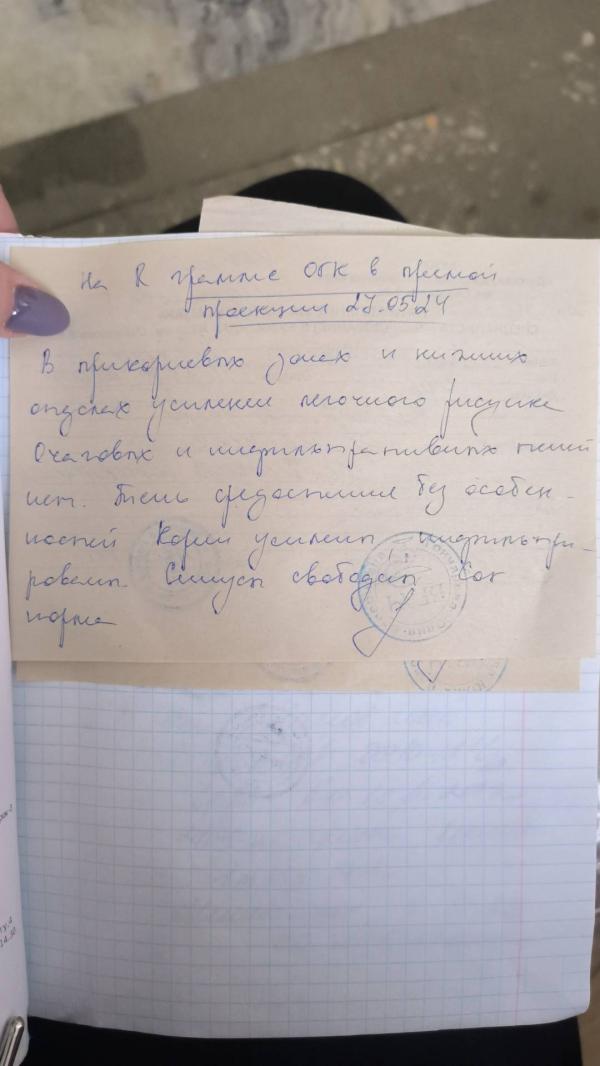 на R грамме ОГК в прямой
проекции 27.05.24
В прикорневых зонах и нижних
отделах усиление легочного рисунка
Очаговых и инфильтративных теней
нет. Тень средостения без особен-
ностей Корни усилены инфильтри-
рованы. Синусы свободны Cor
норма